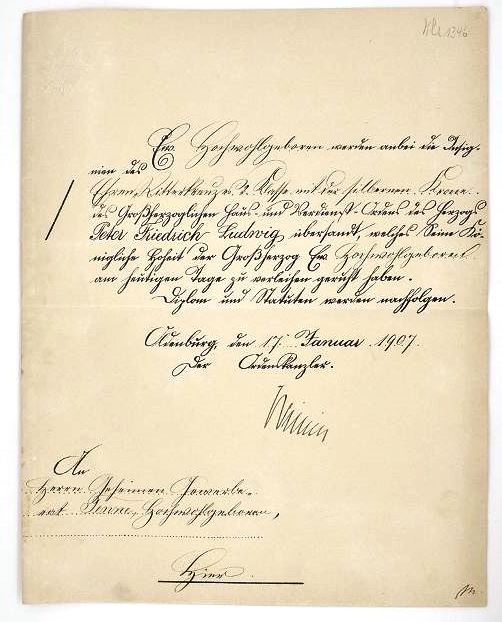 Ew. Hochwohlgeboren werden anbei die Insig-
nien des
Ehren-Ritterkreuzes 2. Klasse mit der silbernen Krone
des Großherzoglichen Haus- und Verdienst-Ordens des Herzogs
Peter Friedrich Ludwig übersandt, welches Seine Kö-
nigliche Hoheit der Großherzog Ew. Hochwohlgeboren
am heutigen Tage zu verleihen geruht haben.
Diplom und Statuten werden nachfolgen.
Oldenburg, den 17. Januar 1907.
Der Ordenskanzler.
An
Herrn Geheimen
Hochwohlgeboren,
Hier.